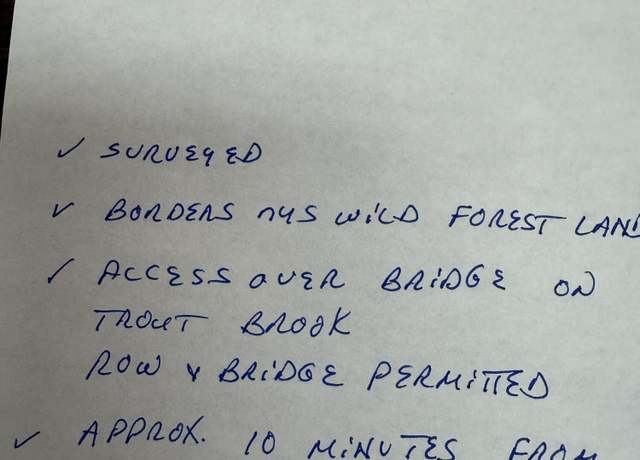 ✓ SURVEYED
✓ BORDERS NYS WILD FOREST LAND
✓ ACCESS OVER BRIDGE ON
TROUT BROOK
ROW & BRIDGE PERMITTED
✓ APPROX. 10 MINUTES FROM